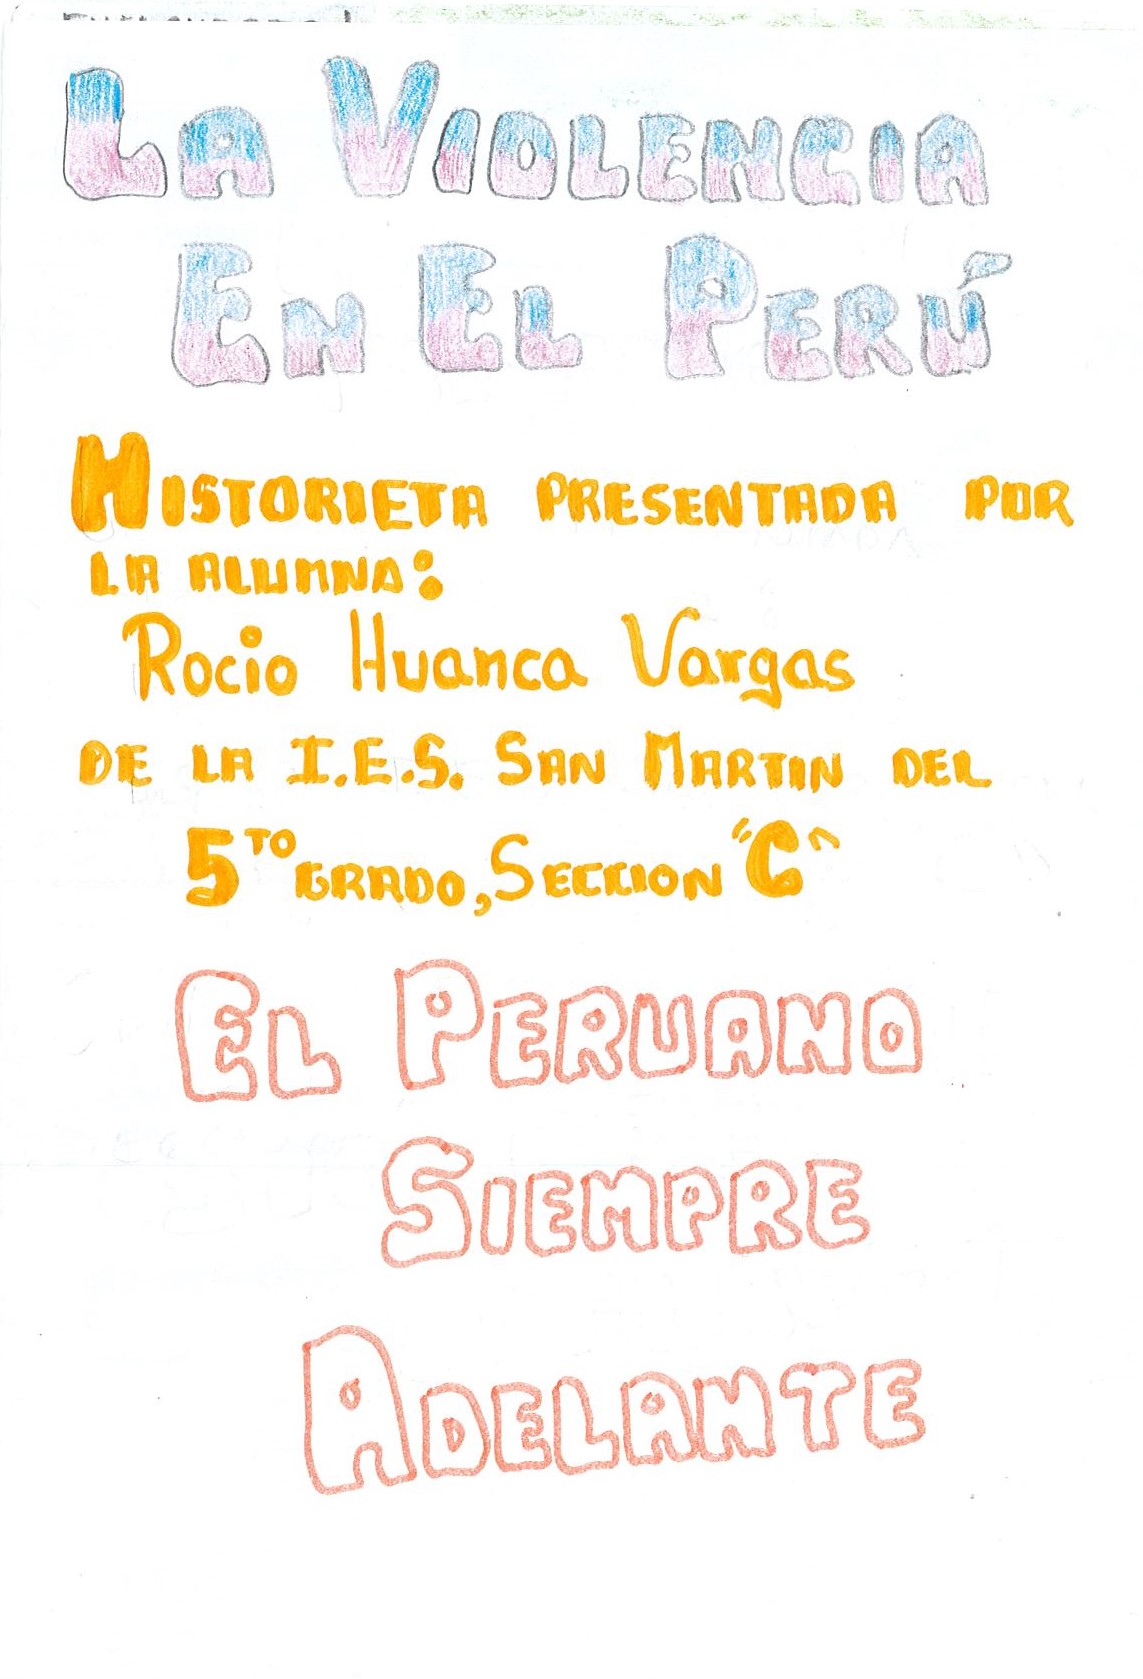 LA VIOLENCIA
EN EL PERÚ
HISTORIETA PRESENTADA POR
LA ALUMNA:
Rocio Huanca Vargas
DE LA I.E.S. SAN MARTIN DEL
5TO GRADO, SECCION "C"
EL PERUANO
SIEMPRE
ADELANTE